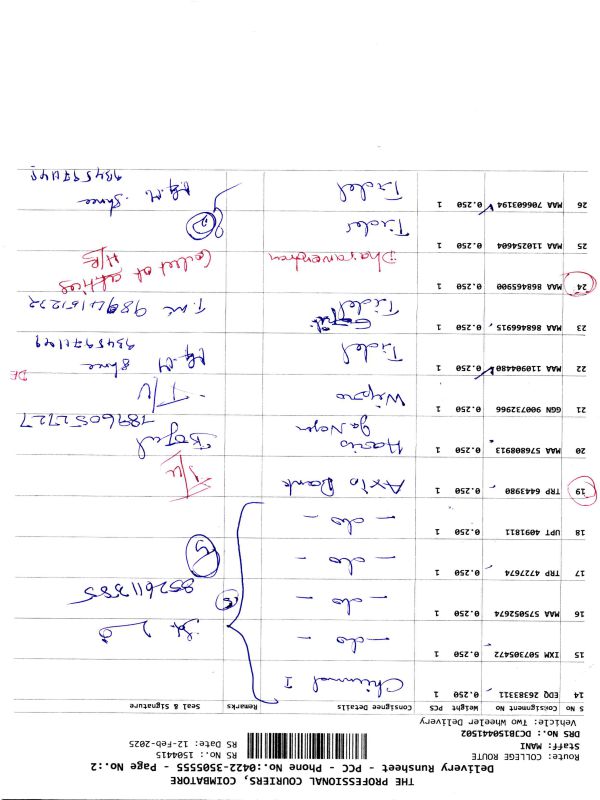 THE PROFESSIONAL COURIERS, COIMBATORE
Delivery Runsheet - PCC - Phone No.:0422-3505555 - Page No.:2
Route: COLLEGE ROUTE
Staff: MANI RS No.: 1504415
DRS No.: DCB150441502 RS Date: 12-Feb-2025
Vehicle: Two Wheeler Delivery
S No Consignment No Weight PCS Consignee Details Remarks Seal & Signature
14 EDQ 2683311 0.250 1 Chinmal I
15 IXM 507305472 0.250 1 - do -
16 MAA 575052674 0.250 1 - do - 8526113585
17 TRP 4727674 0.250 1 - do -
18 UPT 4091811 0.250 1 - do -
19 TRP 6443980 0.250 1 Axis Bank
20 MAA 576808913 0.250 1 Haris Gopal
7896052727
21 GGN 900732966 0.250 1 Wipro T/U
DE
22 MAA 110904480 0.250 1 Tidel Shree
9345971149
23 MAA 868466915 0.250 1 Tidel
24 MAA 868465900 0.250 1 Dhairavendran Collect at office
H/B
25 MAA 110254604 0.250 1 Tidel
26 MAA 706603194 0.250 1 Tidel Shree